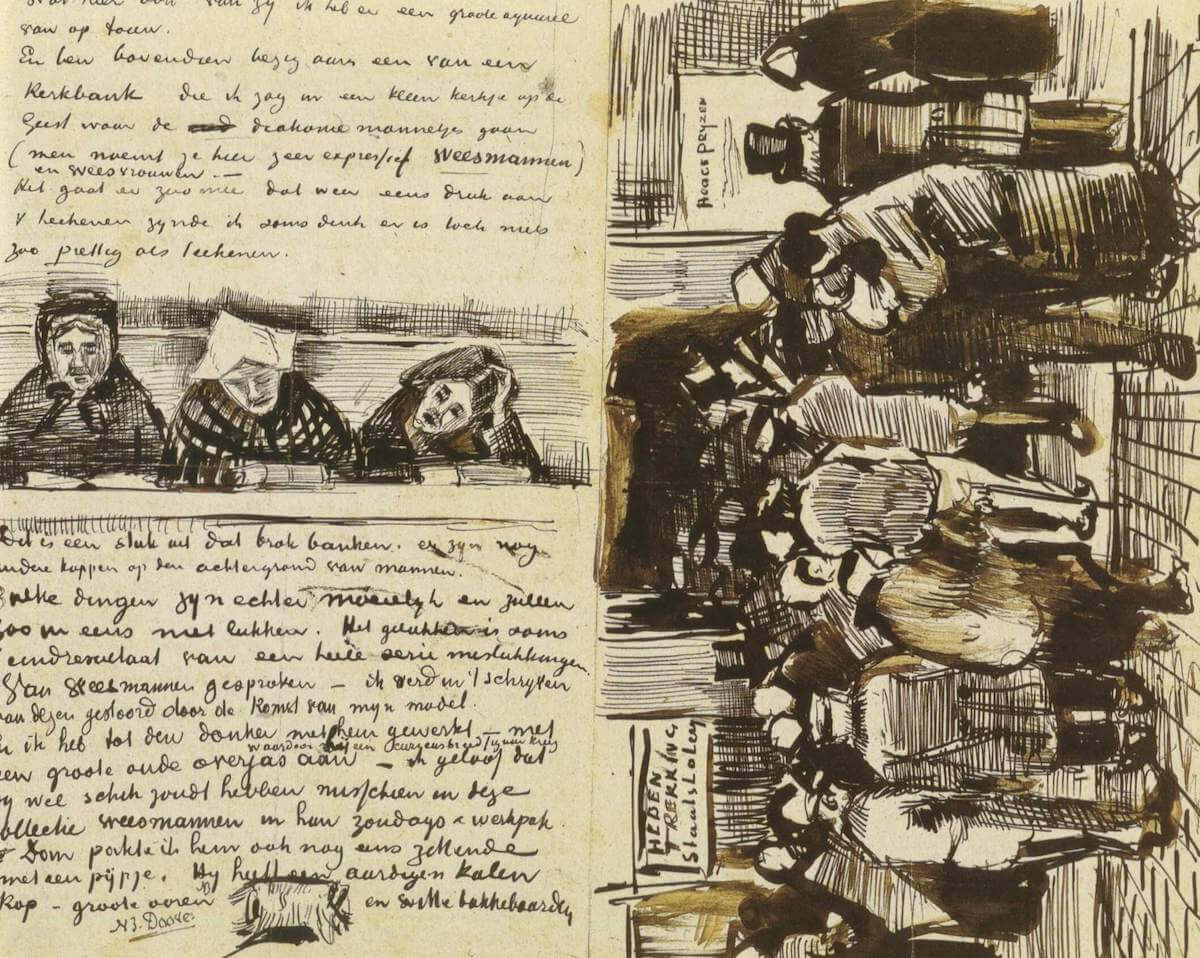 Wat hier ook van zy ik heb er een groote aquarel
van op touw.
En ben bovendien bezig aan een van een
Kerkbank die ik zag in een klein kerkje op de
Geest waar de diakonie mannetjes gaan
(men noemt ze hier zeer expressief weesmannen)
en weesvrouwen. —
Het gaat er zoo mee dat weer eens druk aan
't teekenen zynde ik soms denk er is toch niets
zoo prettig als teekenen.
Dit is een stuk uit dat brok banken. er zyn nog
andere koppen op den achtergrond van mannen.
Zulke dingen zyn echter moeielyk en zullen
zoo in eens niet lukken. Het gelukken is soms
't eindresultaat van een heele serie mislukkingen
Van Weesmannen gesproken — ik werd in 't schryven
van dezen gestoord door de Komst van myn model.
En ik heb tot den donker met hem gewerkt — met
waardoor een breed figuur kreeg
een groote oude overjas aan — ik geloof dat
gy wel schik zoudt hebben misschien in deze
collectie weesmannen in hun zondags & werkpak.
Dom pakte ik hem ook nog eens zittende
met een pijpje. Hy heeft een aardigen Kalen
Kop – groote ooren NB en witte bakkebaarden
NB. Doove
HOOGE PRYZEN
HEDEN
TREKKING
StaatsLotery